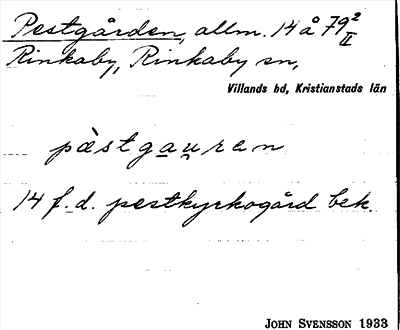 Pestgården, allm. 14 å 79²
II
Rinkaby, Rinkaby sn,
Villands hd, Kristianstads län
pæ̀stga̲u̯ren
14 f. d. pestkyrkogård bek.
JOHN SVENSSON 1933